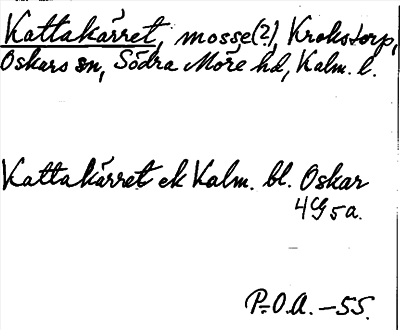 Kattakärret, mosse(?), Krokstorp,
Oskars sn, Södra Möre hd, Kalm. l.
Kattakärret ek Kalm. bl. Oskar
4G 5a.
P.-O.A. -55.